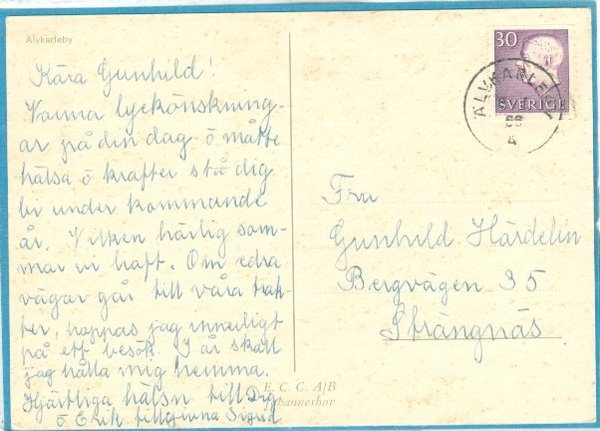 Älvkarleby
Kära Gunhild!
Varma lyckönskning-
ar på din dag o måtte
hälsa o krafter stå dig
bi under kommande
år. Vilken härlig som-
mar vi haft. Om edra
vägar går till våra trak-
ter, hoppas jag innerligt
på ett besök. I år skall
jag hålla mig hemma.
Hjärtliga hälsn till Dig
o Erik. tillgivna Sigrid
30
SVERIGE
ÄLVKARLEBY
4
Fru
Gunhild Härdelin
Bergvägen 35
Strängnäs
E. C. C. A/B
Johanneshov